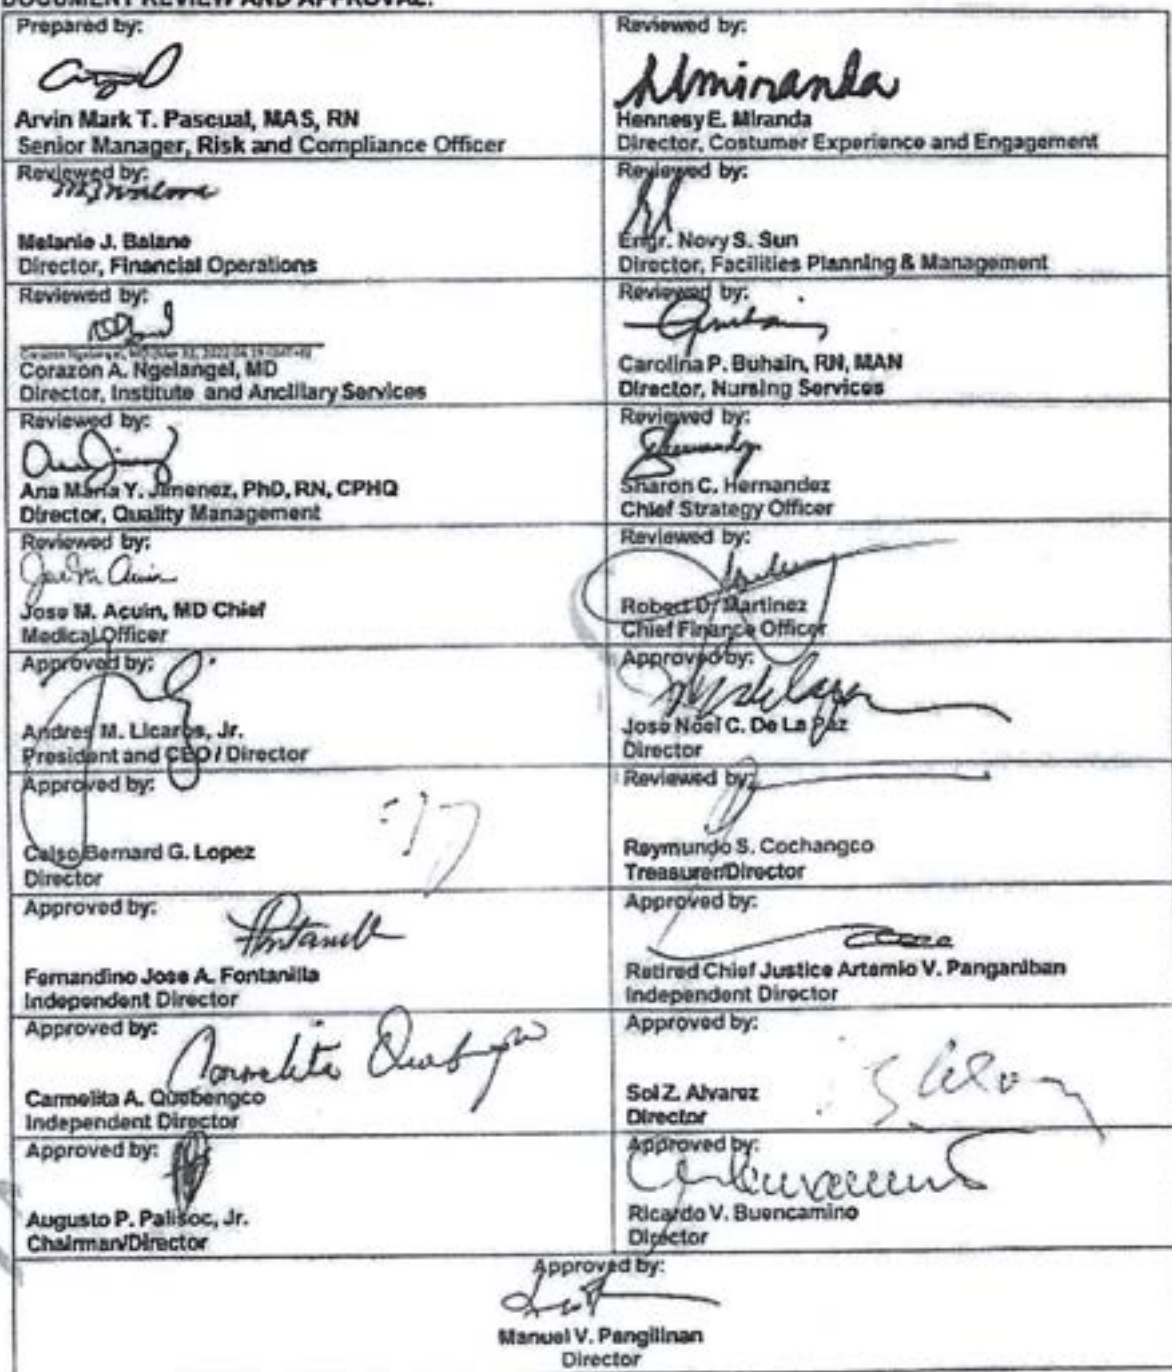 DOCUMENT REVIEW AND APPROVAL:
Prepared by:
Arvin Mark T. Pascual, MAS, RN
Senior Manager, Risk and Compliance Officer
Reviewed by:
HMiranda
Hennesy E. Miranda
Director, Costumer Experience and Engagement
Reviewed by:
Melanie J. Balane
Director, Financial Operations
Reviewed by:
Engr. Novy S. Sun
Director, Facilities Planning & Management
Reviewed by:
Corazon A. Ngelangel, MD
Director, Institute and Ancillary Services
Reviewed by:
Carolina P. Buhain, RN, MAN
Director, Nursing Services
Reviewed by:
Ana Maria Y. Jimenez, PhD, RN, CPHQ
Director, Quality Management
Reviewed by:
Sharon C. Hernandez
Chief Strategy Officer
Reviewed by:
Jose M. Acuin, MD Chief
Medical Officer
Reviewed by:
Robert D. Martinez
Chief Finance Officer
Approved by:
Andres M. Licaros, Jr.
President and CEO / Director
Approved by:
Jose Noel C. De La Paz
Director
Approved by:
Celso Bernard G. Lopez
Director
Reviewed by:
Raymundo S. Cochangco
Treasurer/Director
Approved by:
Fernandino Jose A. Fontanilla
Independent Director
Approved by:
Retired Chief Justice Artemio V. Panganiban
Independent Director
Approved by:
Carmelita Quebengco
Carmelita A. Quebengco
Independent Director
Approved by:
Sol Z. Alvarez
Director
Approved by:
Augusto P. Palisoc, Jr.
Chairman/Director
Approved by:
Ricardo V. Buencamino
Director
Approved by:
Manuel V. Pangilinan
Director